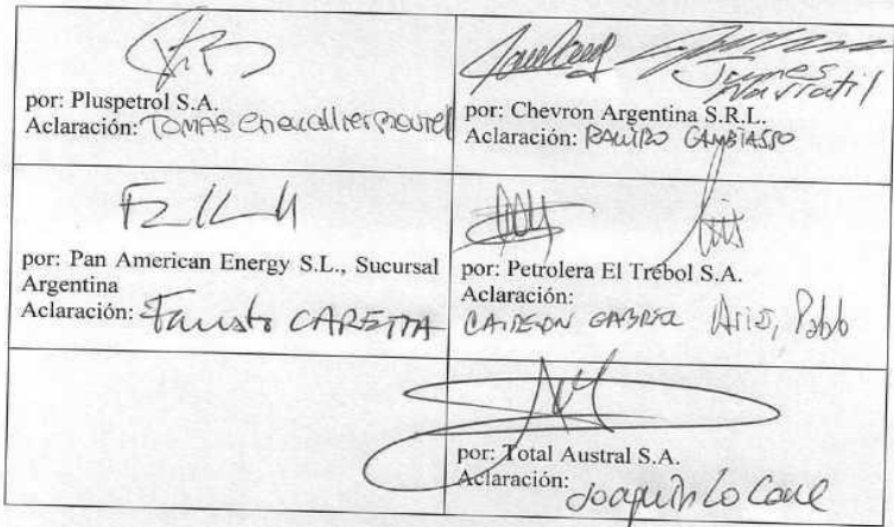 por: Pluspetrol S.A.
Aclaración: TOMAS
James
Navratil
por: Chevron Argentina S.R.L.
Aclaración: RAMIRO CAMBIASSO
por: Pan American Energy S.L., Sucursal
Argentina
Aclaración: Fausto CARETTA
por: Petrolera El Trébol S.A.
Aclaración:
CALDERON GABRIEL Pablo
por: Total Austral S.A.
Aclaración:
Joaquin Lo Cane